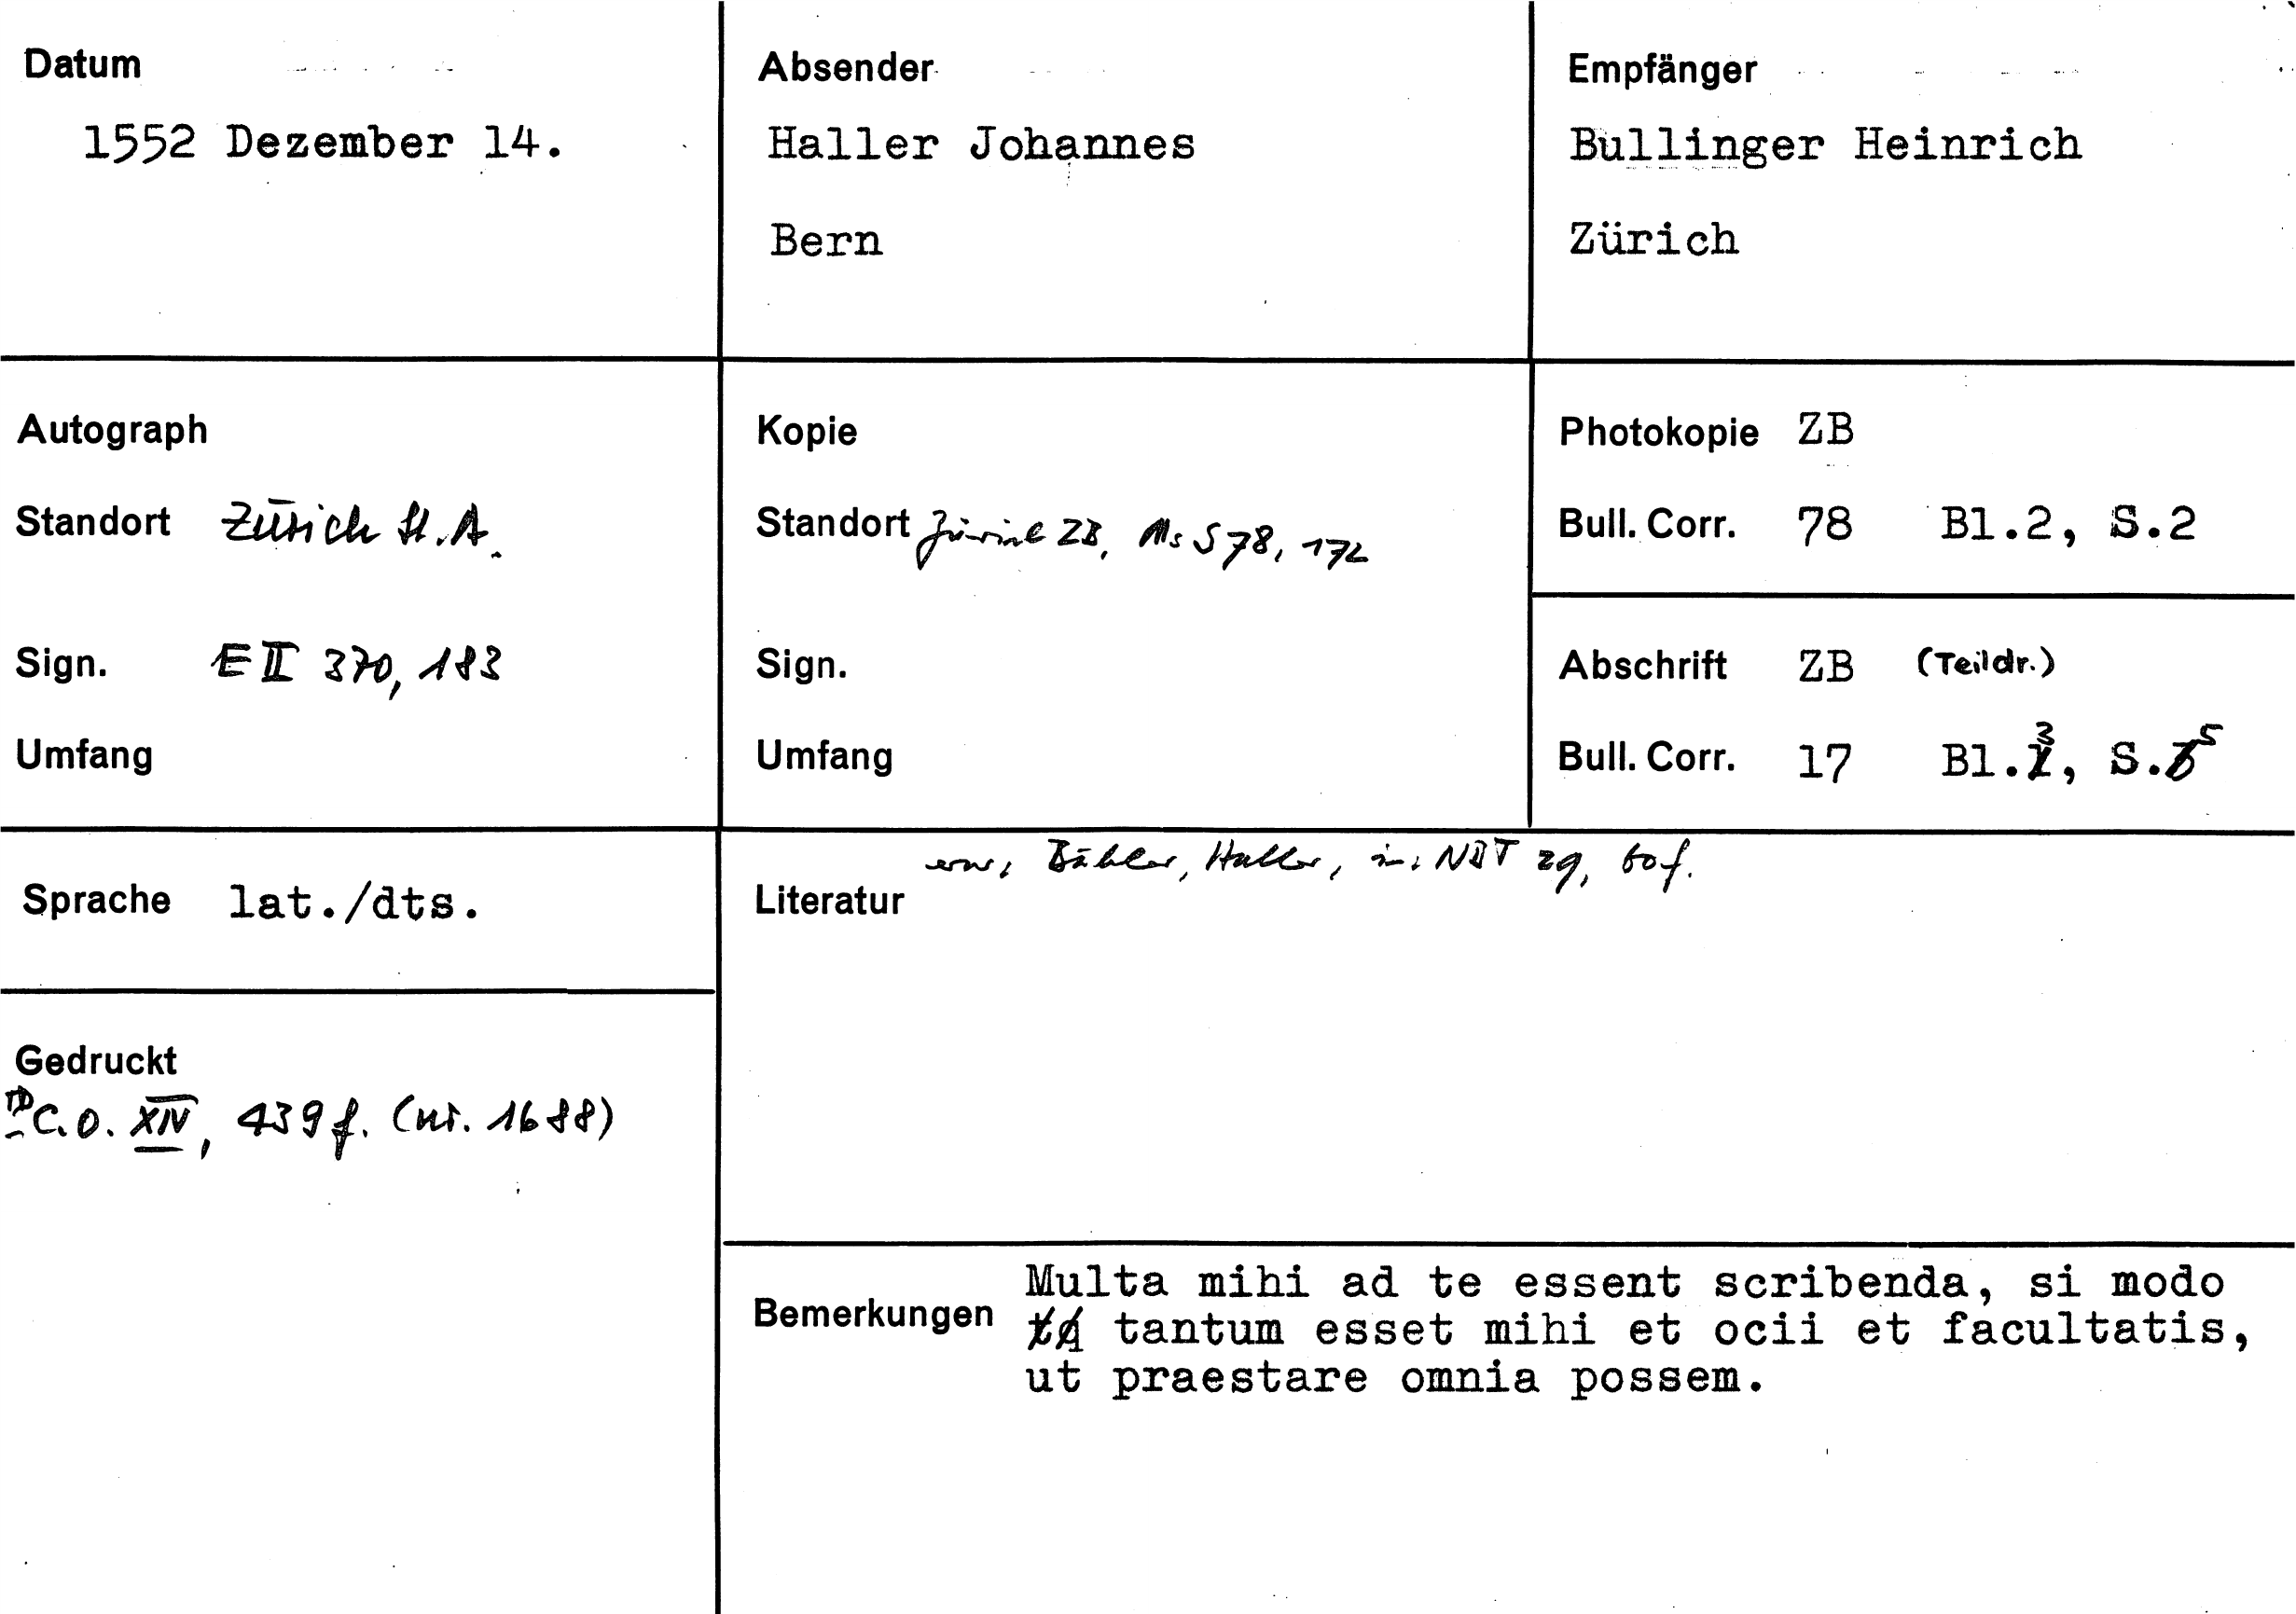 Datum
1552 Dezember 14.
Absender
Haller Johannes
Bern
Empfänger
Bullinger Heinrich
Zürich
Autograph
Standort Zürich St.A.
Sign. E II 370, 183
Umfang
Kopie
Standort Zürich ZB, Ms S 78, 172
Sign.
Umfang
Photokopie ZB
Bull. Corr. 78 Bl.2, S.2
Abschrift ZB (Teildr.)
Bull. Corr. 17 Bl.3, S.5
Sprache lat./dts.
Gedruckt
TD C.O. XIV, 439 f. (nr. 1688)
Literatur
erw. Bähler, Haller, in: NBT 29, 60 f.
Bemerkungen
Multa mihi ad te essent scribenda, si modo
tantum esset mihi et ocii et facultatis,
ut praestare omnia possem.